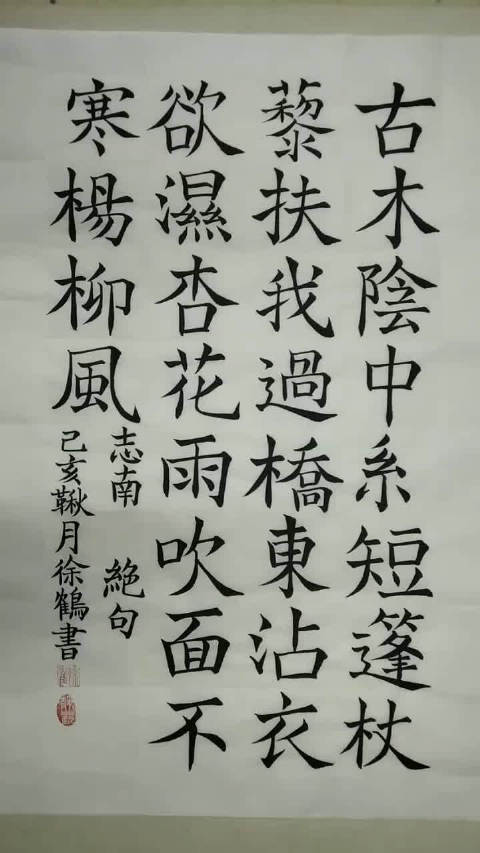 古木陰中系短篷杖
藜扶我過橋東沾衣
欲濕杏花雨吹面不
寒楊柳風
志南 絕句
己亥鞦月徐鶴書